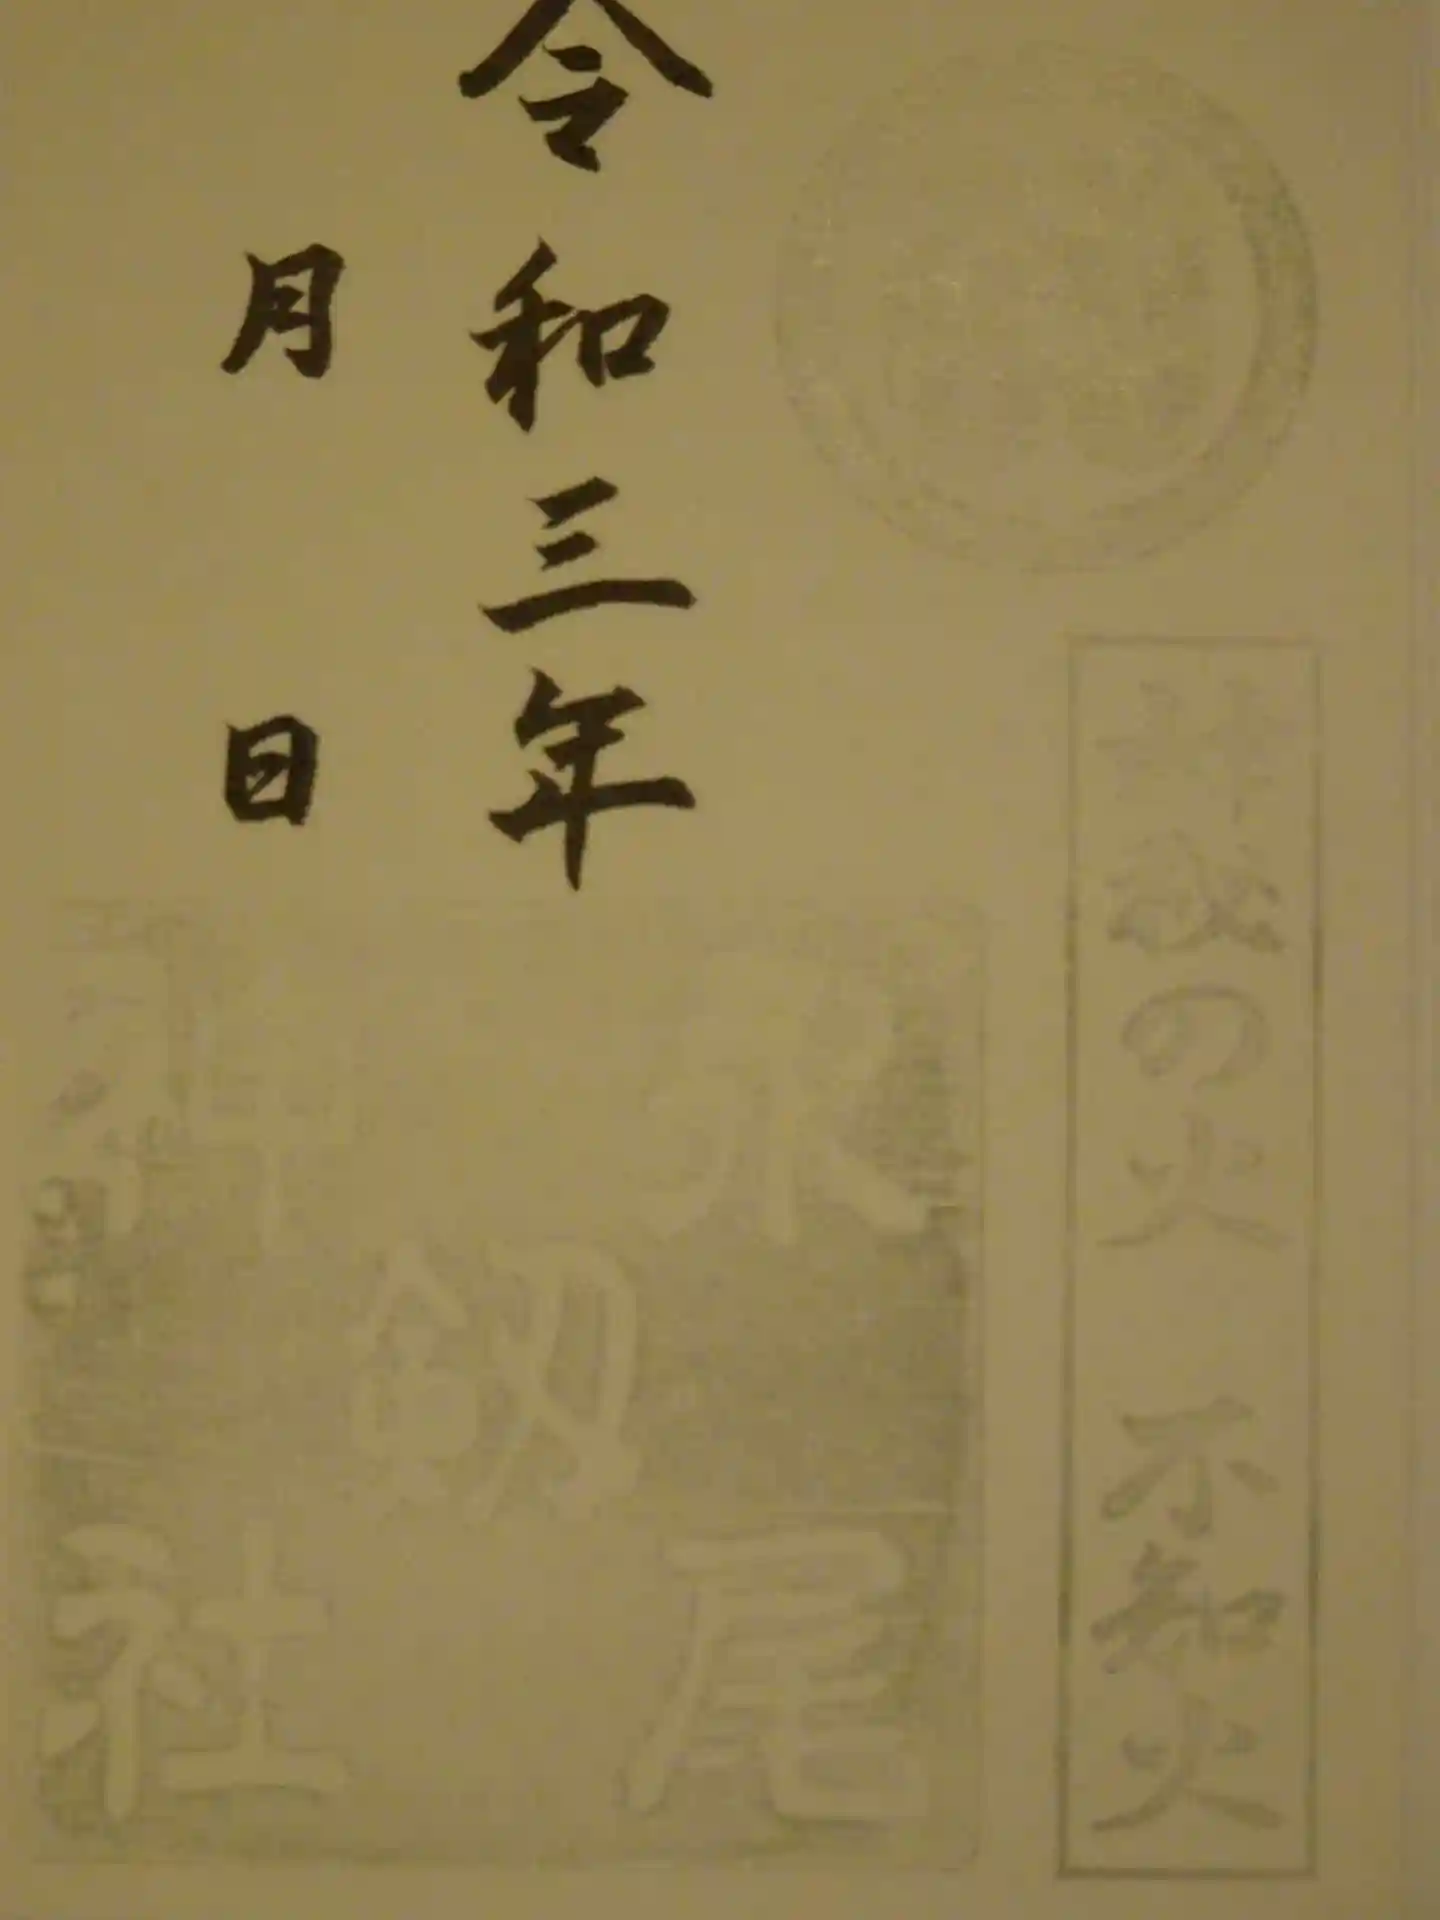 神秘の火 不知火
令和三年
月 日
永尾
剱
神社